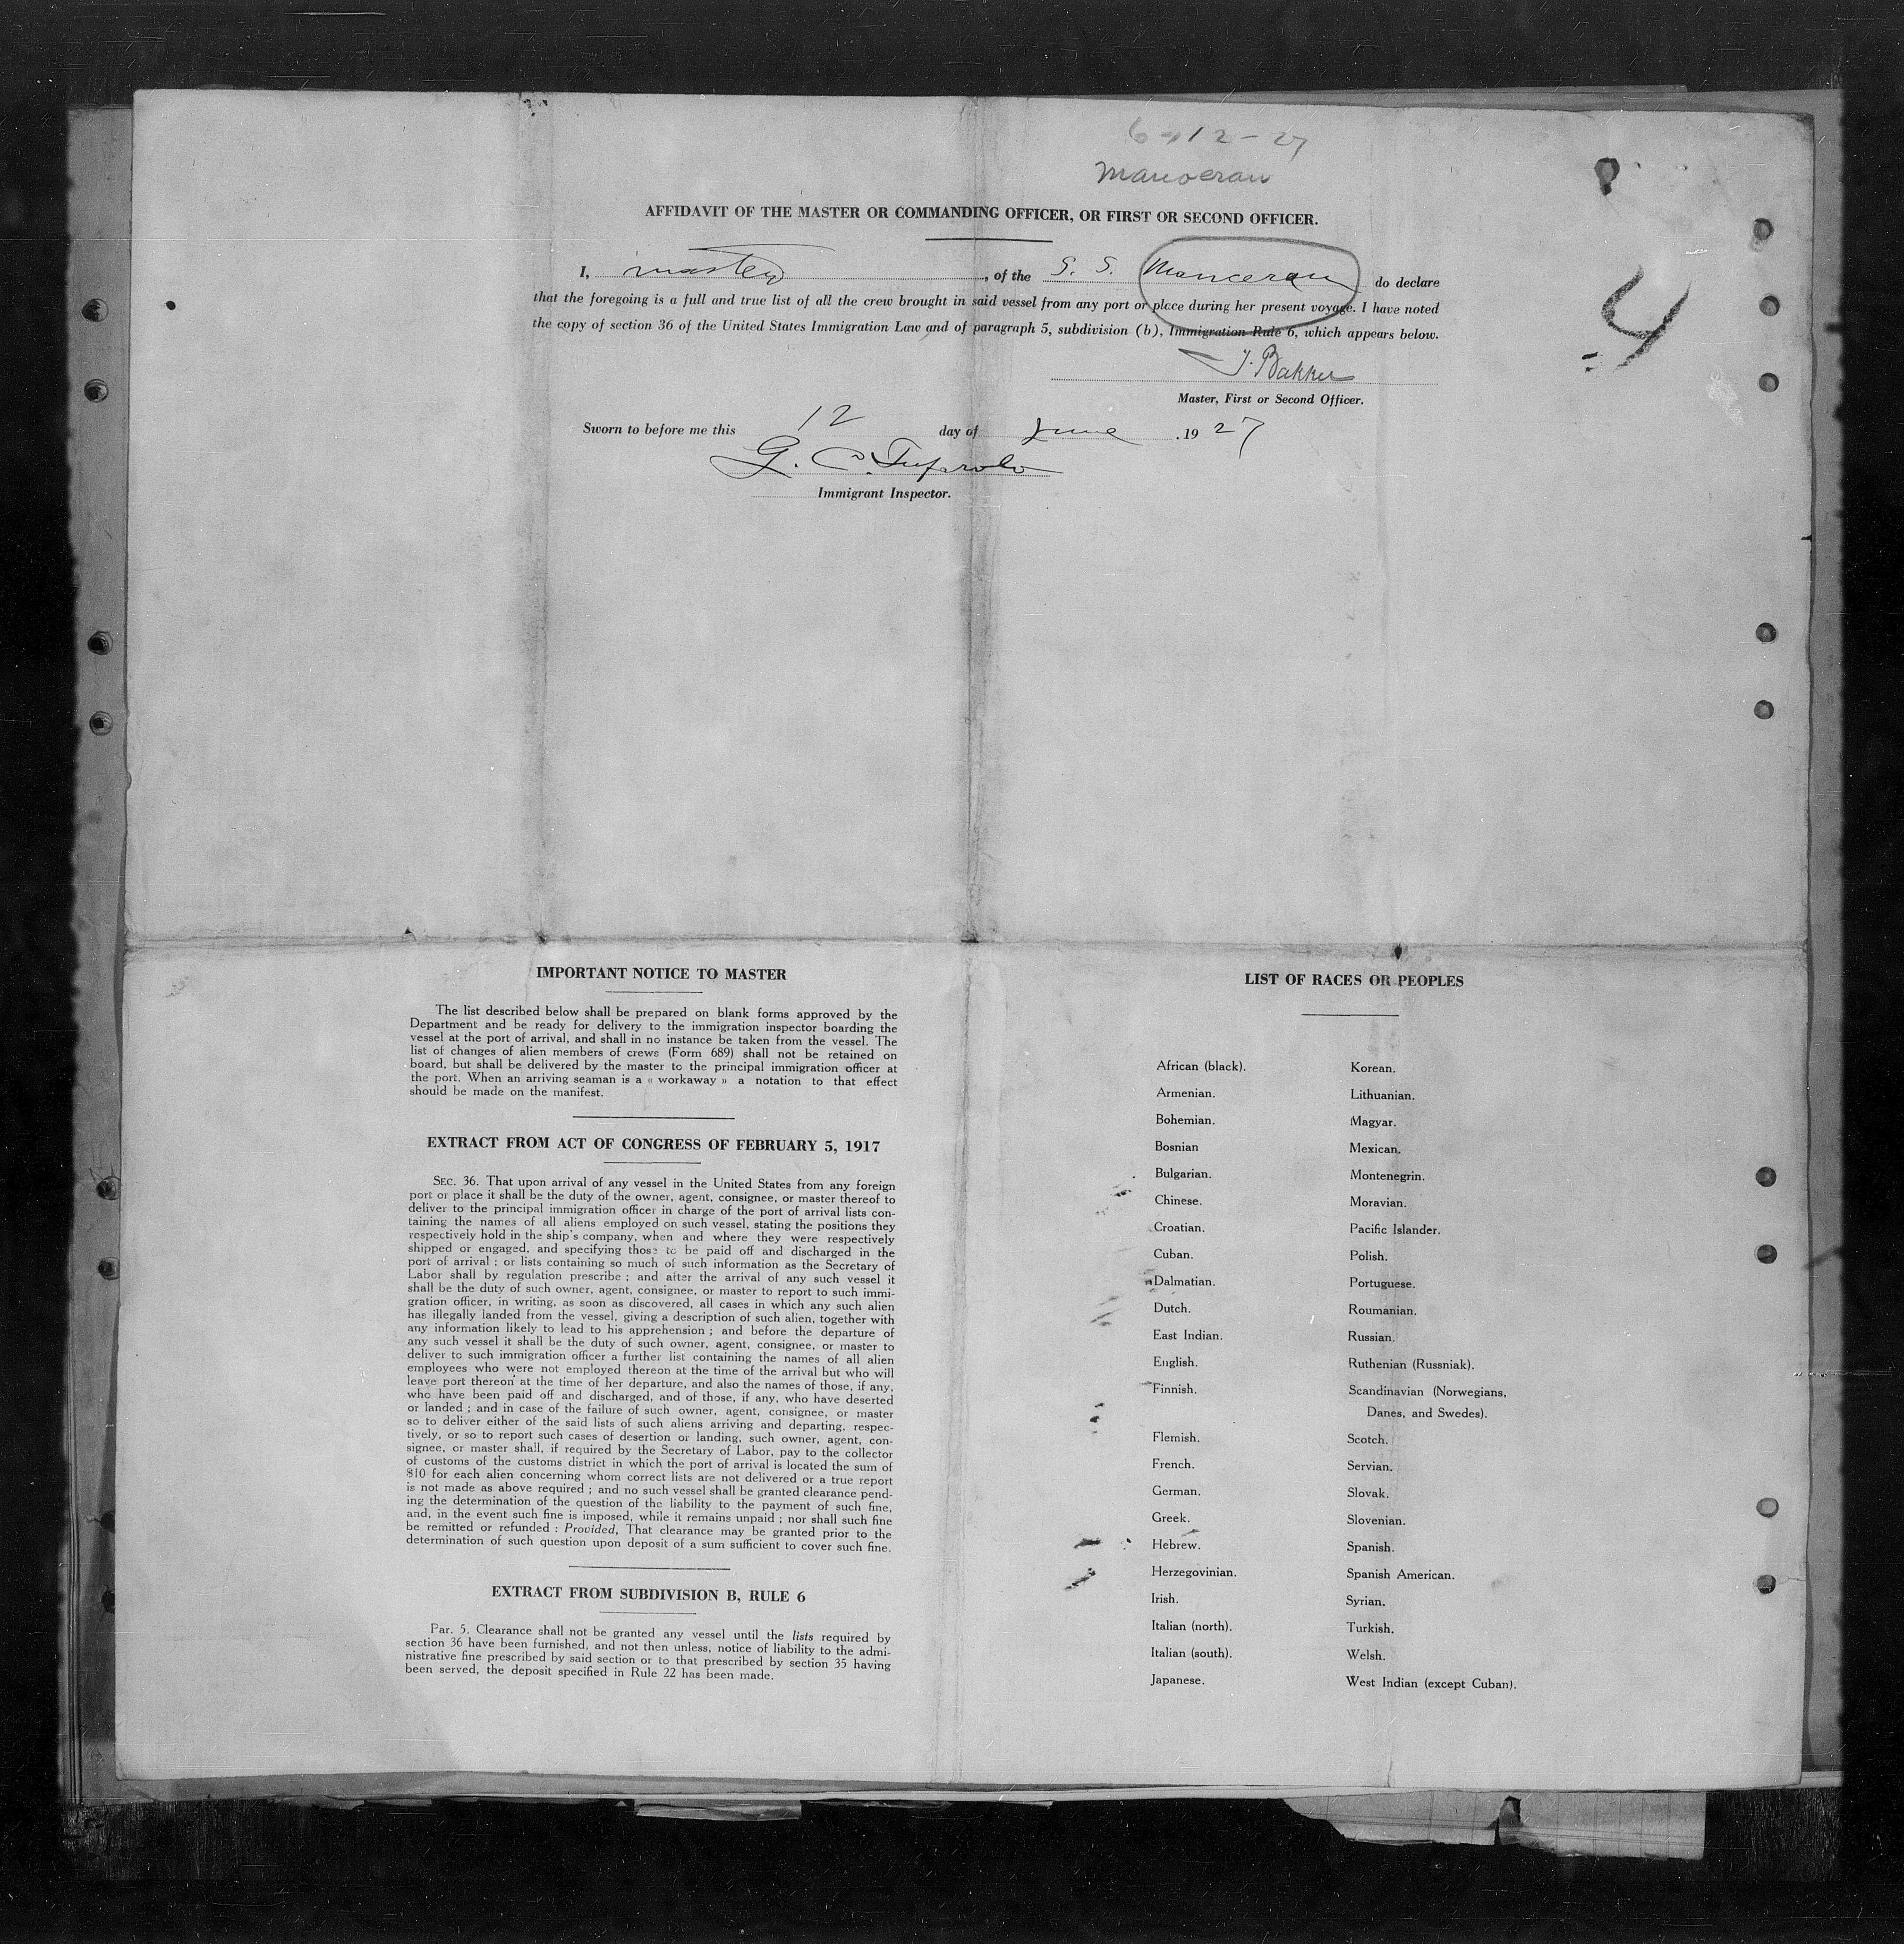 6-12-27
Manoeran
AFFIDAVIT OF THE MASTER OR COMMANDING OFFICER, OR FIRST OR SECOND OFFICER.
I, master, of the S. S. Manoeran do declare
that the foregoing is a full and true list of all the crew brought in said vessel from any port or place during her present voyage. I have noted
the copy of section 36 of the United States Immigration Law and of paragraph 5, subdivision (b), Immigration Rule 6, which appears below.
J. Bakker
Master, First or Second Officer.
Sworn to before me this 12 day of June, 1927
G. C.
Immigrant Inspector.
4
IMPORTANT NOTICE TO MASTER
The list described below shall be prepared on blank forms approved by the
Department and be ready for delivery to the immigration inspector boarding the
vessel at the port of arrival, and shall in no instance be taken from the vessel. The
list of changes of alien members of crews (Form 689) shall not be retained on
board, but shall be delivered by the master to the principal immigration officer at
the port. When an arriving seaman is a « workaway » a notation to that effect
should be made on the manifest.
EXTRACT FROM ACT OF CONGRESS OF FEBRUARY 5, 1917
SEC. 36. That upon arrival of any vessel in the United States from any foreign
port or place it shall be the duty of the owner, agent, consignee, or master thereof to
deliver to the principal immigration officer in charge of the port of arrival lists con-
taining the names of all aliens employed on such vessel, stating the positions they
respectively hold in the ship's company, when and where they were respectively
shipped or engaged, and specifying those to be paid off and discharged in the
port of arrival ; or lists containing so much of such information as the Secretary of
Labor shall by regulation prescribe ; and after the arrival of any such vessel it
shall be the duty of such owner, agent, consignee, or master to report to such immi-
gration officer, in writing, as soon as discovered, all cases in which any such alien
has illegally landed from the vessel, giving a description of such alien, together with
any information likely to lead to his apprehension ; and before the departure of
any such vessel it shall be the duty of such owner, agent, consignee, or master to
deliver to such immigration officer a further list containing the names of all alien
employees who were not employed thereon at the time of the arrival but who will
leave port thereon at the time of her departure, and also the names of those, if any,
who have been paid off and discharged, and of those, if any, who have deserted
or landed ; and in case of the failure of such owner, agent, consignee, or master
so to deliver either of the said lists of such aliens arriving and departing, respec-
tively, or so to report such cases of desertion or landing, such owner, agent, con-
signee, or master shall, if required by the Secretary of Labor, pay to the collector
of customs of the customs district in which the port of arrival is located the sum of
$10 for each alien concerning whom correct lists are not delivered or a true report
is not made as above required ; and no such vessel shall be granted clearance pend-
ing the determination of the question of the liability to the payment of such fine,
and, in the event such fine is imposed, while it remains unpaid ; nor shall such fine
be remitted or refunded : Provided, That clearance may be granted prior to the
determination of such question upon deposit of a sum sufficient to cover such fine.
EXTRACT FROM SUBDIVISION B, RULE 6
Par. 5. Clearance shall not be granted any vessel until the lists required by
section 36 have been furnished, and not then unless, notice of liability to the admi-
nistrative fine prescribed by said section or to that prescribed by section 35 having
been served, the deposit specified in Rule 22 has been made.
LIST OF RACES OR PEOPLES
African (black).
Armenian.
Bohemian.
Bosnian
Bulgarian.
Chinese.
Croatian.
Cuban.
Dalmatian.
Dutch.
East Indian.
English.
Finnish.
Flemish.
French.
German.
Greek.
Hebrew.
Herzegovinian.
Irish.
Italian (north).
Italian (south).
Japanese.
Korean.
Lithuanian.
Magyar.
Mexican.
Montenegrin.
Moravian.
Pacific Islander.
Polish.
Portuguese.
Roumanian.
Russian.
Ruthenian (Russniak).
Scandinavian (Norwegians,
Danes, and Swedes).
Scotch.
Servian.
Slovak.
Slovenian.
Spanish.
Spanish American.
Syrian.
Turkish.
Welsh.
West Indian (except Cuban).